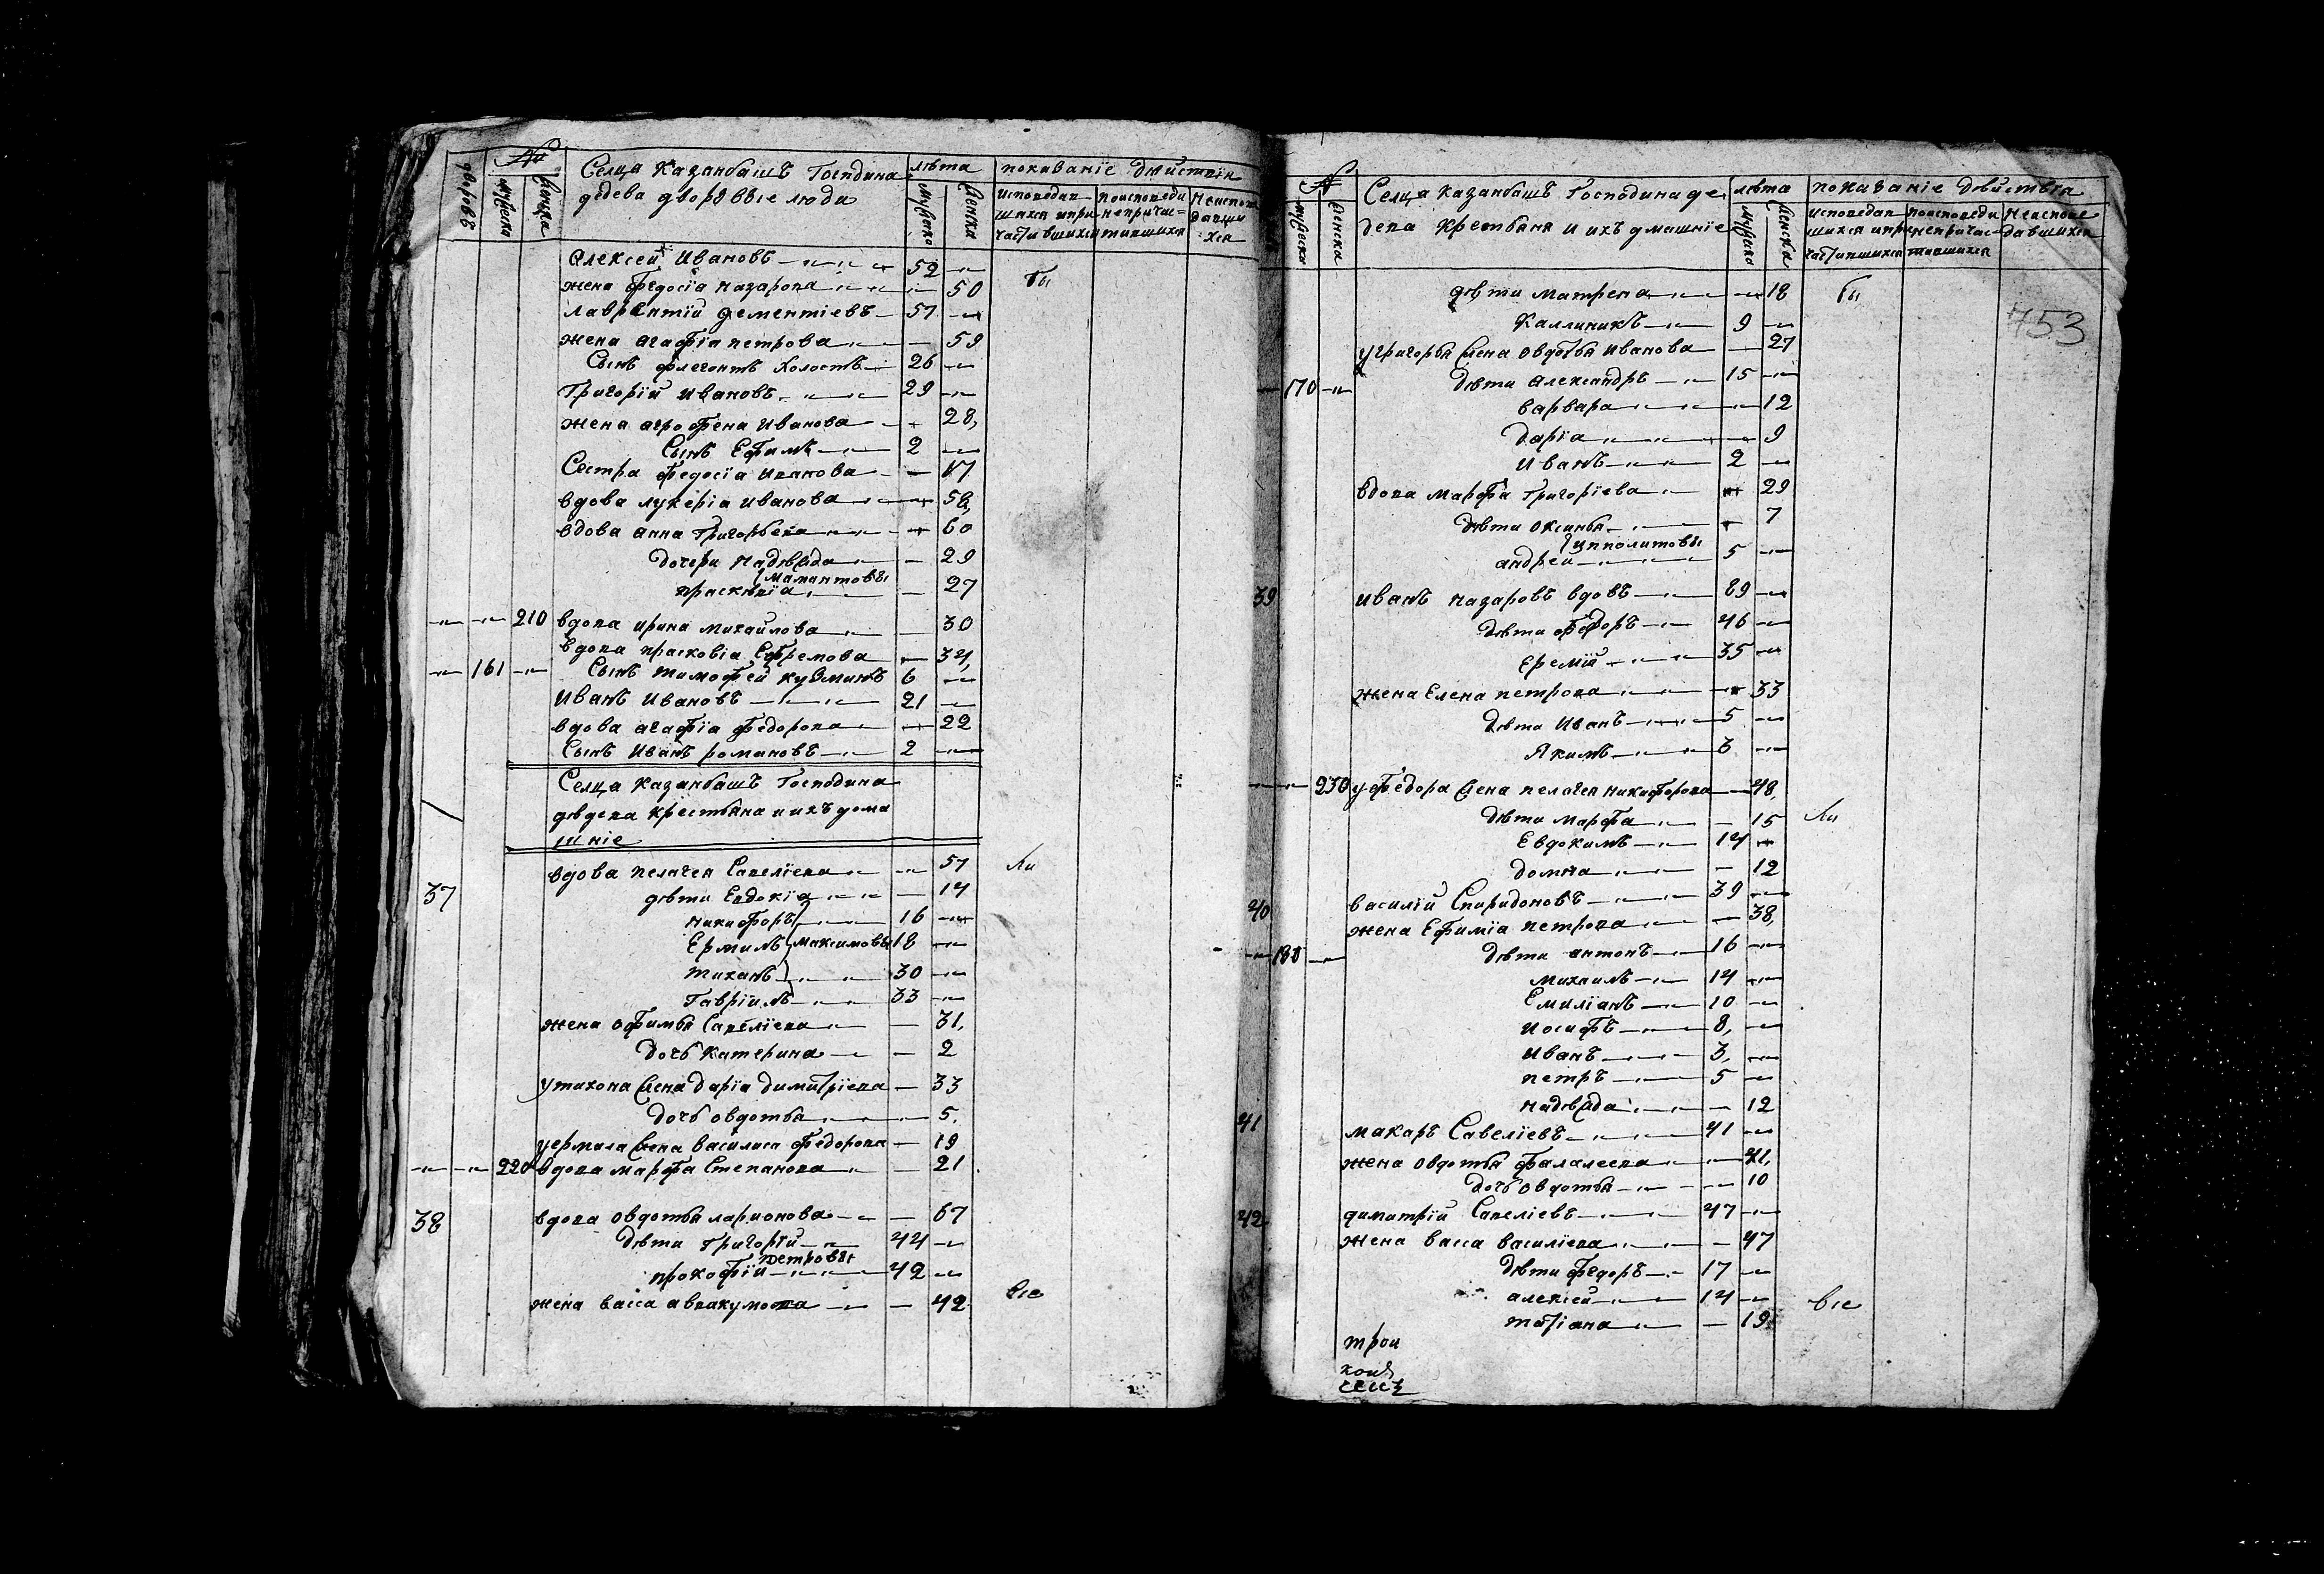 №
дворовъ
мужеска
женска
Селца Казанбашъ Господина
дедева дворовые люди
лѣта
мужеска
женска
показание дѣйствія
исповедав
шихся и при
частившихся
поисповеди
непричас=
тившихся
неиспове
давши
хся
Алексей Ивановъ 52
жена Федосіа Назарова 50
Лаврентий Дементіевъ 57
жена Агафіа Петрова 59
Сынъ Флегонтъ холостъ 26
Григорий Ивановъ 29
жена Агрофена Иванова 28,
Сынъ Ефимъ 2
Сестра Федосіа Иванова 17
вдова Лукеріа Иванова 58,
вдова Анна Григорьева 60
дочери Надѣжда 29
Мамантовы
Прасковіа 27
210 вдова Ирина Михайлова 30
вдова Прасковіа Ефремова 34,
161 Сынъ Тимофей Кузминъ 6
Иванъ Ивановъ 21
вдова Агафіа Федорова 22
Сынъ Иванъ Романовъ 2
Селца Казанбашъ Господина
дѣдева крестьяна и ихъ дома
шніе
37 вдова Пелагея Савеліева 51
дѣти Евдокіа 14
Никифоръ 16
Ермилъ Максимовы 18
Тиханъ 30
Гавріилъ 33
жена Офимья Савеліева 31,
дочь Катерина 2
у Тихона жена Даріа Димитріева 33
дочь Овдотья 5.
у Ермила жена Василиса Федорова 19
220 вдова Марфа Степанова 21
38 вдова Овдотья Ларионова 67
дѣти Григорій 44
Петровы
Прокофій 42
жена Васса Аввакумова 42
бы
ли
все
№
мужеска
женска
Селца Казанбашъ Господина де
дева крестьяня и ихъ дмашніе
лѣта
мужеска
женска
показаніе дѣйствіа
исповедав
шихся и при
частившихся
поисповеди
непричас=
тившихся
неиспове
давшихся
753
дѣти Матрена 18
Каллиникъ 9
у Григорья жена Овдотья Иванова 27
170 дѣти Александръ 15
Варвара 12
Даріа 9
Иванъ 2
вдова Марфа Григоріева 29
дѣти Оксинья 7
Ипполитовы
Андреи 5
39 Иванъ Назаровъ вдовъ 69
дѣти Федоръ 46
Еремій 35
жена Елена Петрова 33
дѣти Иванъ 5
Якимъ 3
230 у Федора жена Пелагея Никифорова 48,
дѣти Марфа 15
Евдокимъ 14
Домна 12
40 Василий Спиридоновъ 39
жена Ефиміа Петрова 38,
180 дѣти Антонъ 16
Михаилъ 14
Емиліанъ 10
Иосифъ 8,
Иванъ 3,
Петръ 5
Надѣжда 12
41 Макаръ Савеліевъ 41
жена Овдотья Фалалеева 41,
дочь Овдотья 10
42 Димитрій Савеліевъ 47
жена Васса Василіева 47
дѣти Федоръ 17
Алексей 14
Татіана 19
бы
ли
все
трои